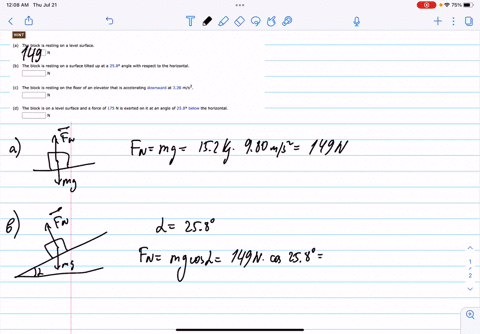 12:08 AM Thu Jul 21
75%
HINT
(a) The block is resting on a level surface.
149 N
(b) The block is resting on a surface tilted up at a 25.8° angle with respect to the horizontal.
N
(c) The block is resting on the floor of an elevator that is accelerating downward at 3.26 m/s².
N
(d) The block is on a level surface and a force of 175 N is exerted on it at an angle of 25.8° below the horizontal.
N
a) FN FN = mg = 15.2 kg · 9.80 m/s² = 149 N
mg
b) FN α = 25.8°
mg FN = mg cos α = 149 N · cos 25.8° =
α
1
2